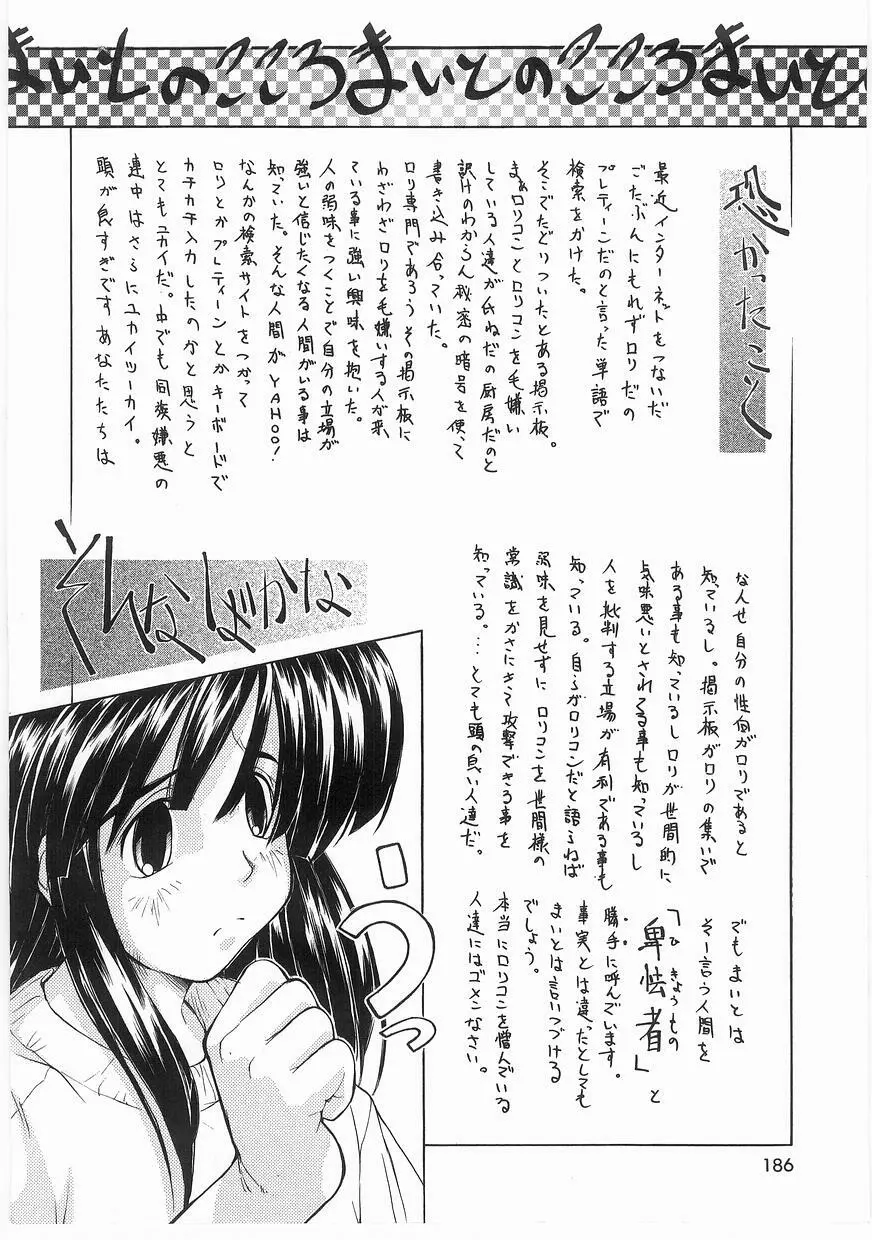 まいとのこころまいとのこころまいと
恐かったこと
最近インターネットをつないだ
ごたぶんにもれずロリだの
プレティーンだのと言った単語で
検索をかけた。
そこでたどりついたとある掲示板。
まぁロリコンとロリコンを毛嫌い
している人達が氏ねだの厨房だのと
訳のわからん秘密の暗号を使って
書き込み合っていた。
ロリ専門であろうその掲示板に
わざわざロリを毛嫌いする人が来
ている事に強い興味を抱いた。
人の弱味をつくことで自分の立場が
強いと信じたくなる人間がいる事は
知っていた。そんな人間がYAHOO!
なんかの検索サイトをつかって
ロリとかプレティーンとかキーボードで
カチカチ入力したのかと思うと
とてもユカイだ。中でも同族嫌悪の
連中はさらにユカイツーカイ。
頭が良すぎですあなたたちは
なんせ自分の性向がロリであると
知っているし。掲示板がロリの集いで
ある事も知っているしロリが世間的に
気味悪いとされてる事も知っているし
人を批判する立場が有利である事も
知っている。自らがロリコンだと語らねば
弱味を見せずにロリコンを世間様の
常識をかさにきて攻撃できる事を
知っている。…とても頭の良い人達だ。
でもまいとは
そー言う人間を
「卑怯者」と
ひきょうもの
勝手に呼んでいます。
事実とは違ったとしても
まいとは言いつづける
でしょう。
本当にロリコンを憎んでいる
人達にはゴメンなさい。
そんなばかな
?っ
186